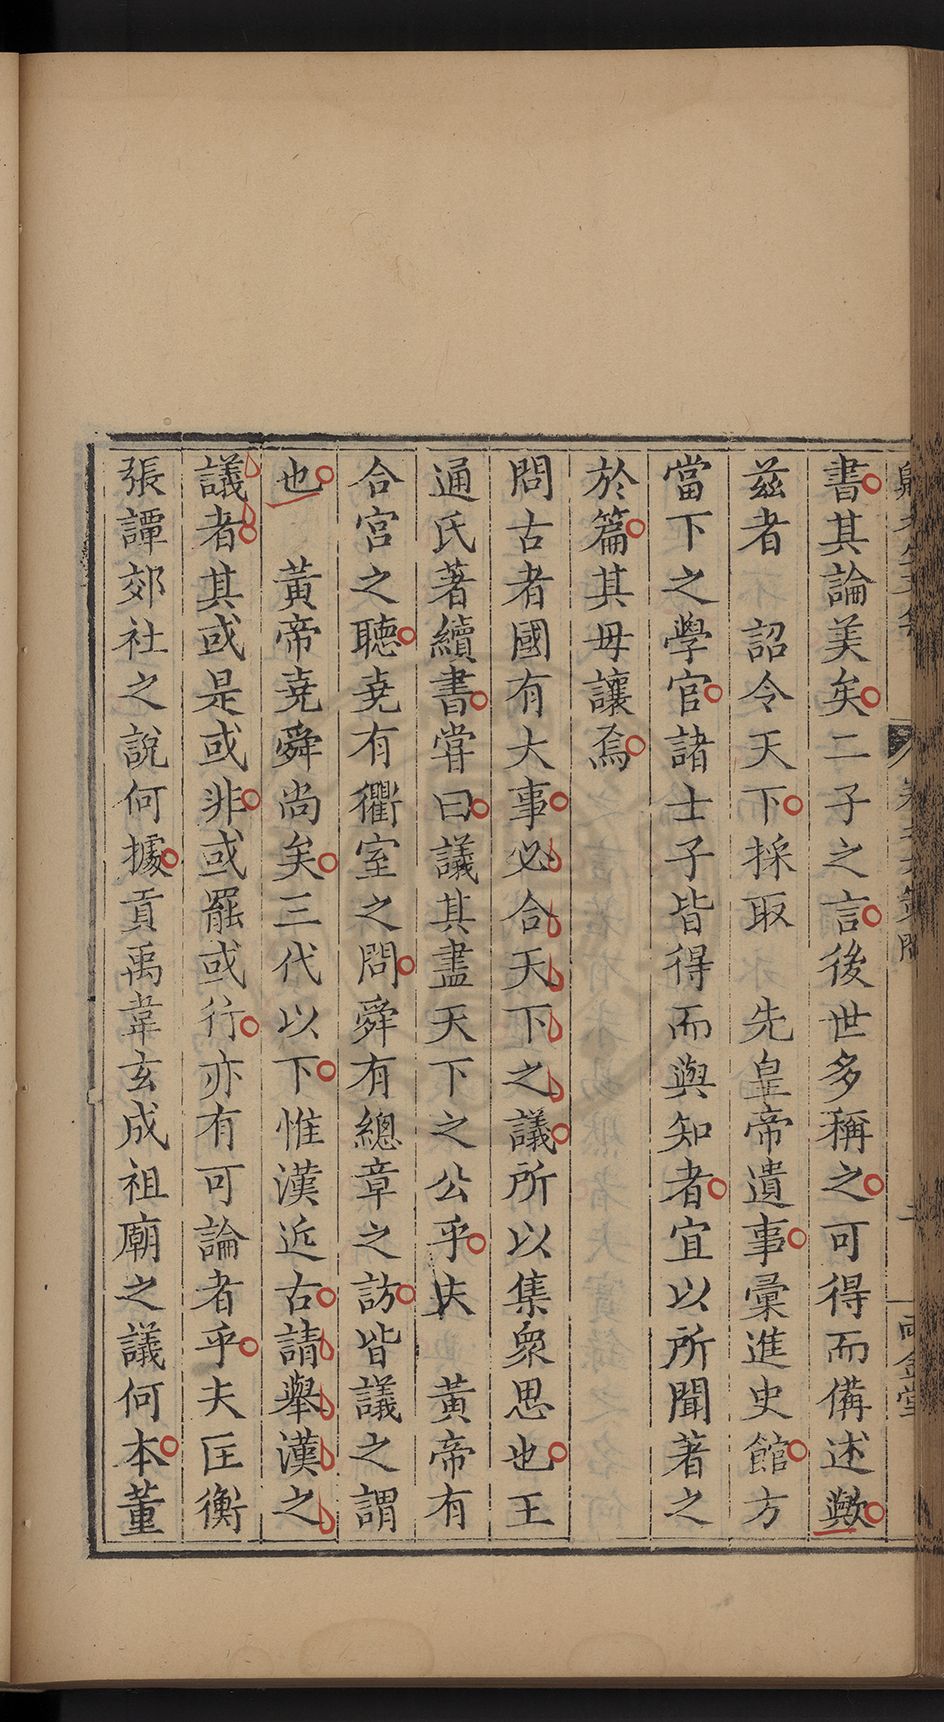 書其論美矣二子之言後世多稱之可得而備述歟
兹者　詔令天下採取　先皇帝遺事彙進史館方
當下之學官諸士子皆得而與知者宜以所聞著之
於篇其毋讓焉
問古者國有大事必合天下之議所以集衆思也王
通氏著續書甞曰議其盡天下之公乎夫　黃帝有
合宮之聽堯有衢室之問舜有總章之訪皆議之謂
也　黃帝堯舜尚矣三代以下惟漢近古請舉漢之
議者其或是或非或罷或行亦有可論者乎夫匡衡
張譚郊社之說何據貢禹韋玄成祖廟之議何本董